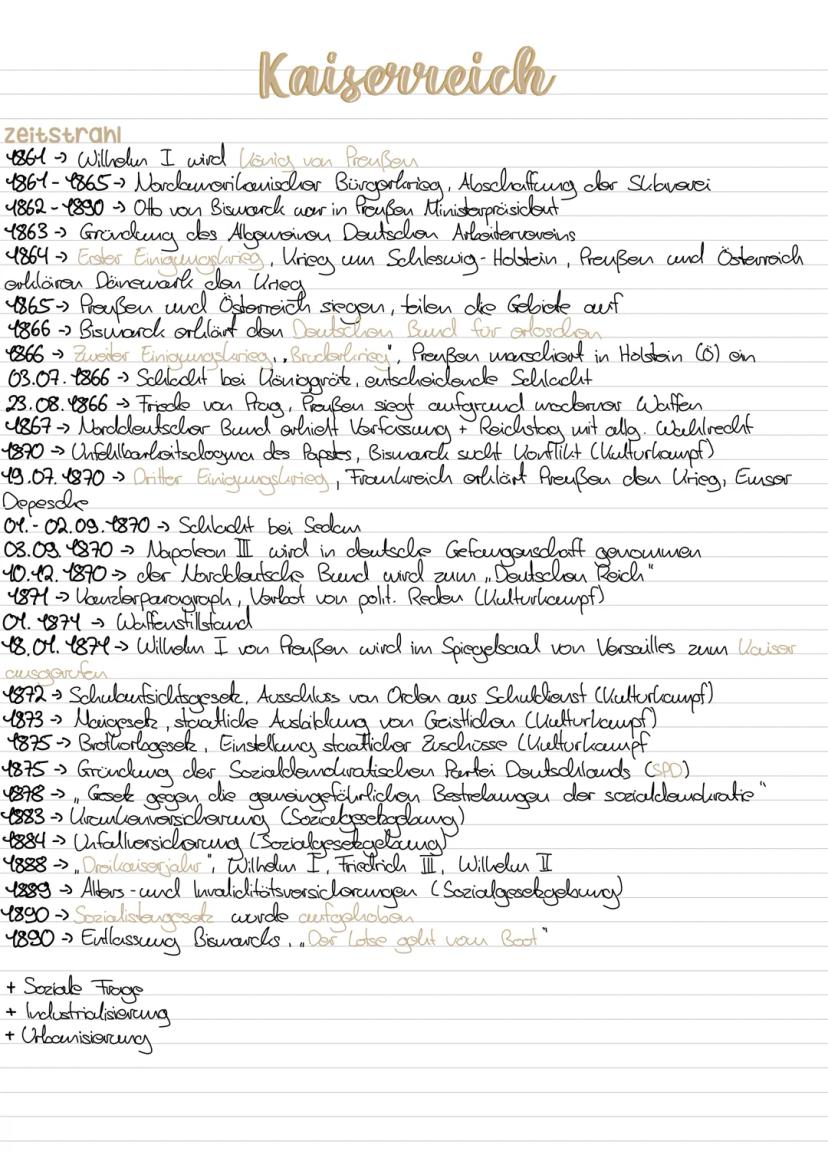 Kaiserreich
zeitstrahl
1861 → Wilhelm I wird König von Preußen
1861 - 1865 → Nordamerikanischer Bürgerkrieg, Abschaffung der Sklaverei
1862 - 1890 → Otto von Bismarck war in Preußen Ministerpräsident
1863 → Gründung des Allgemeinen Deutschen Arbeitervereins
1864 → Erster Einigungskrieg, Krieg um Schleswig-Holstein, Preußen und Österreich
erklären Dänemark den Krieg
1865 → Preußen und Österreich siegen, teilen die Gebiete auf
1866 → Bismarck erklärt den Deutschen Bund für erloschen
1866 → Zweiter Einigungskrieg, „Bruderkrieg", Preußen marschiert in Holstein (Ö) ein
03.07.1866 → Schlacht bei Königgrätz, entscheidende Schlacht
23.08.1866 → Friede von Prag, Preußen siegt aufgrund moderner Waffen
1867 → Norddeutscher Bund erhielt Verfassung + Reichstag mit allg. Wahlrecht
1870 → Unfehlbarkeitsdogma des Papstes, Bismarck sucht Konflikt (Kulturkampf)
19.07.1870 → Dritter Einigungskrieg, Frankreich erklärt Preußen den Krieg, Emser
Depesche
01. - 02.09.1870 → Schlacht bei Sedan
03.09.1870 → Napoleon III wird in deutsche Gefangenschaft genommen
10.12.1870 → der Norddeutsche Bund wird zum „Deutschen Reich"
1871 → Kanzlerparagraph, Verbot von polit. Reden (Kulturkampf)
01.1871 → Waffenstillstand
18.01.1871 → Wilhelm I von Preußen wird im Spiegelsaal von Versailles zum Kaiser
ausgerufen
1872 → Schulaufsichtsgesetz, Ausschluss von Orden aus Schuldienst (Kulturkampf)
1873 → Maigesetz, staatliche Ausbildung von Geistlichen (Kulturkampf)
1875 → Brotkorbgesetz, Einstellung staatlicher Zuschüsse (Kulturkampf
1875 → Gründung der Sozialdemokratischen Partei Deutschlands (SPD)
1878 → „Gesetz gegen die gemeingefährlichen Bestrebungen der sozialdemokratie"
1883 → Krankenversicherung (Sozialgesetzgebung)
1884 → Unfallversicherung (Sozialgesetzgebung)
1888 → „Dreikaiserjahr", Wilhelm I, Friedrich III, Wilhelm II
1889 → Alters- und Invaliditätsversicherungen (Sozialgesetzgebung)
1890 → Sozialistengesetz wurde aufgehoben
1890 → Entlassung Bismarcks, „Der Lotse geht vom Boot"
+ Soziale Frage
+ Industrialisierung
+ Urbanisierung